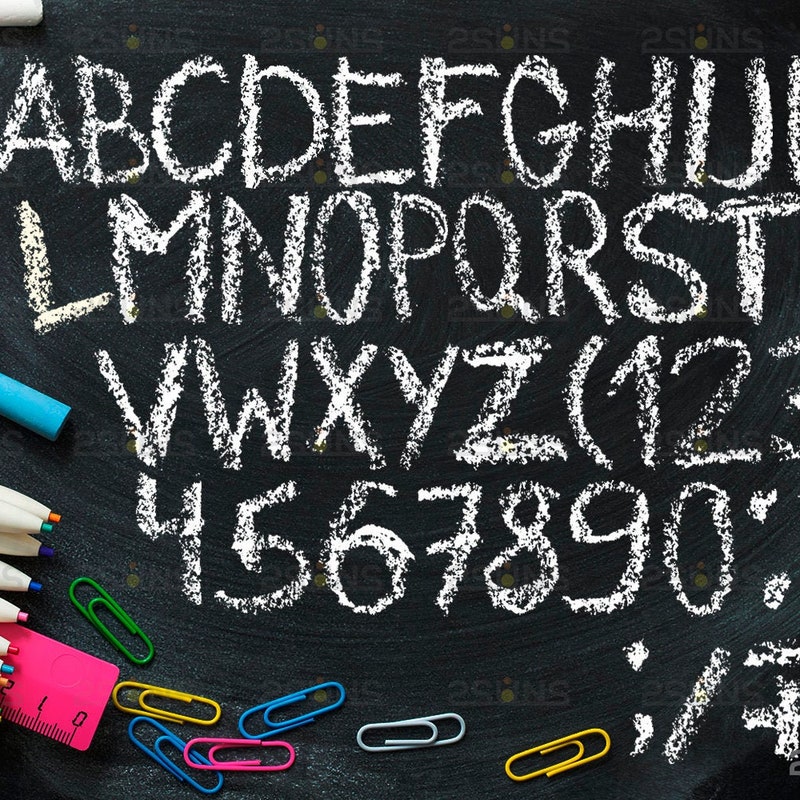 ABCDEFGHIJ
LMNOPQRST
VWXYZ(123
4567890
;/
2 1 0
2SUNS